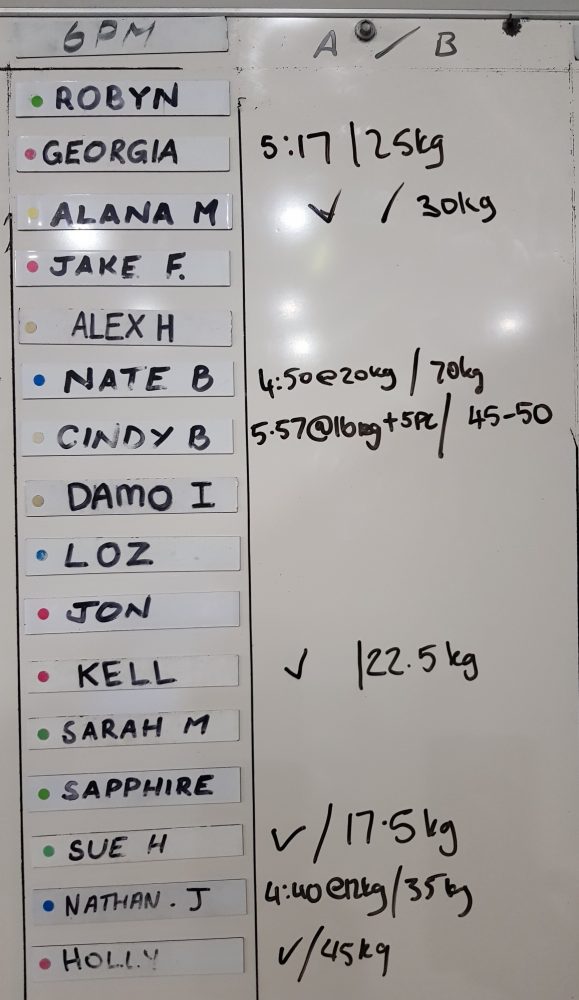 6PM A / B
ROBYN
GEORGIA 5:17 / 25kg
ALANA M ✓ / 30kg
JAKE F.
ALEX H
NATE B 4:50@20kg / 70kg
CINDY B 5.57@16kg+5PC / 45-50
DAMO I
LOZ
JON
KELL ✓ / 22.5kg
SARAH M
SAPPHIRE
SUE H ✓ / 17.5kg
NATHAN. J 4:40@12kg / 35kg
HOLLY ✓ / 45kg